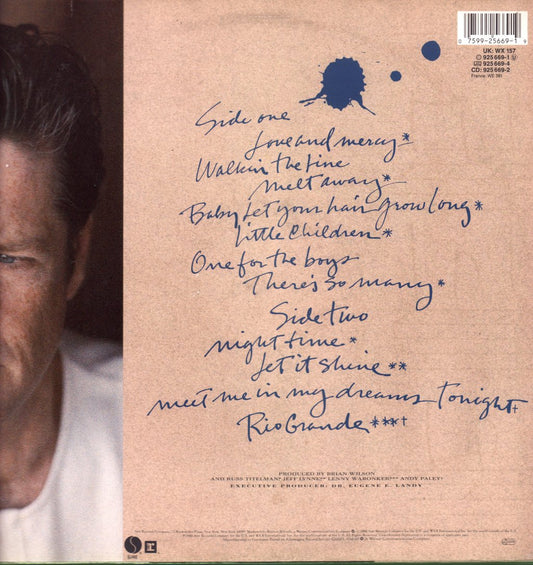 0 7599-25669-1 9
UK: WX 157
925 669-1
925 669-4
CD: 925 669-2
France: WE 381
Side one
Love and mercy*
Walkin the line
Melt away*
Baby Let your hair grow long*
Little Children*
One for the boys
There's so many*
Side two
night time*
Let it shine**
meet me in my dreams tonight+
Rio Grande***+
PRODUCED BY BRIAN WILSON
AND RUSS TITELMAN* JEFF LYNNE** LENNY WARONKER*** ANDY PALEY+
EXECUTIVE PRODUCER: DR. EUGENE E. LANDY